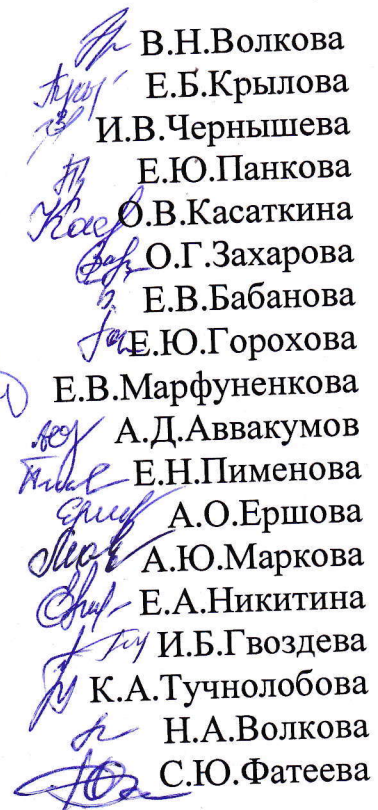 В.Н.Волкова
Е.Б.Крылова
И.В.Чернышева
Е.Ю.Панкова
О.В.Касаткина
О.Г.Захарова
Е.В.Бабанова
Е.Ю.Горохова
Е.В.Марфуненкова
А.Д.Аввакумов
Е.Н.Пименова
А.О.Ершова
А.Ю.Маркова
Е.А.Никитина
И.Б.Гвоздева
К.А.Тучнолобова
Н.А.Волкова
С.Ю.Фатеева